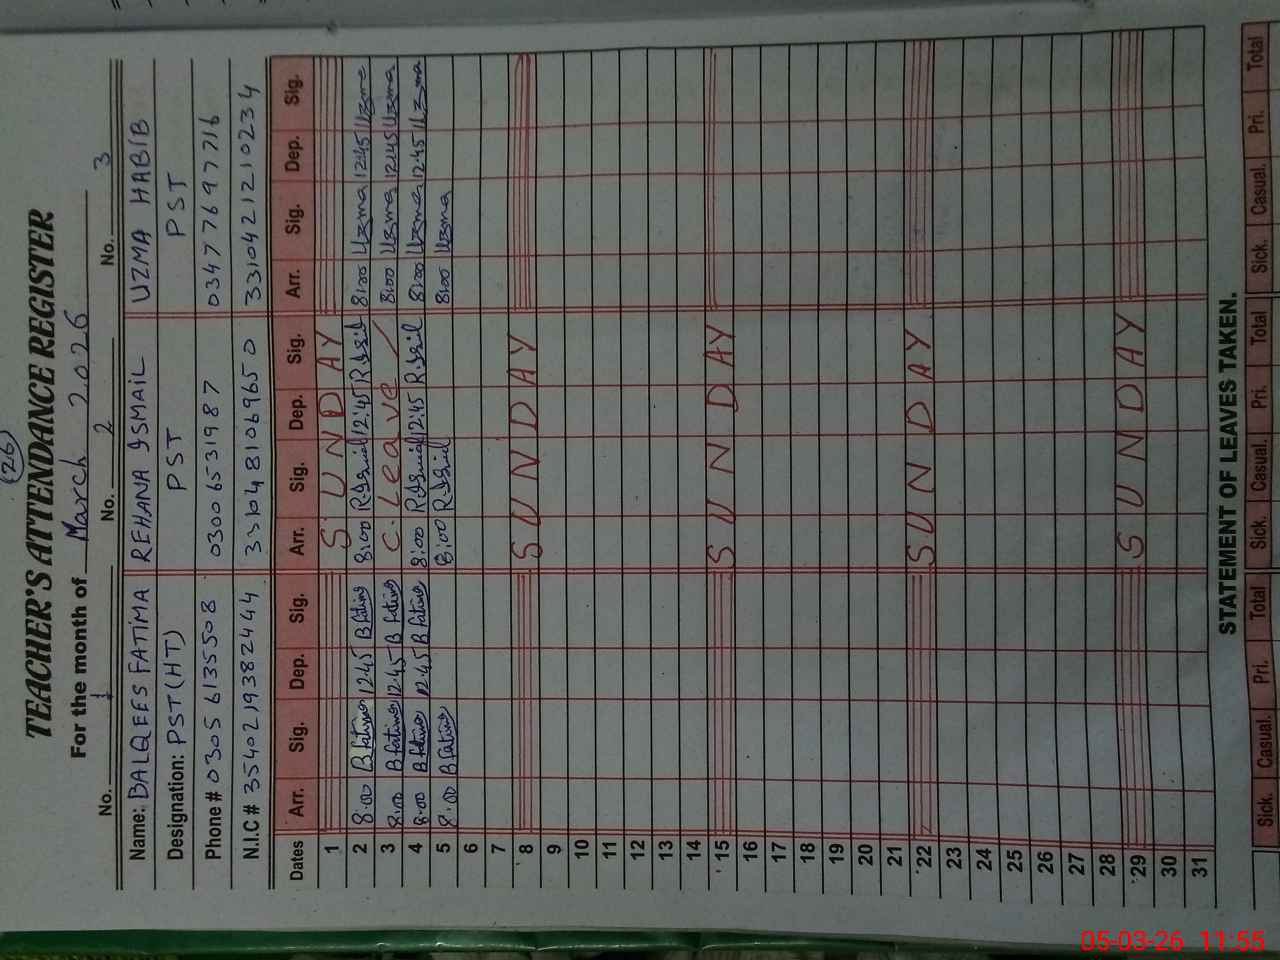 (26)
TEACHER'S ATTENDANCE REGISTER
For the month of March 2026
No. 1 No. 2 No. 3
Name: BALQEES FATIMA REHANA ISMAIL UZMA HABIB
Designation: PST(HT) PST PST
Phone # 0305 6135508 03006531987 03477697716
N.I.C # 3540219382444 3310481069650 3310421210234
Dates Arr. Sig. Dep. Sig. Arr. Sig. Dep. Sig. Arr. Sig. Dep. Sig.
1 SUNDAY
2 8:00 B fatima 12:45 B fatima 8:00 12:45 8:00 Uzma 12:45 Uzma
3 8:00 B fatima 12:45 B fatima C. Leave 8:00 Uzma 12:45 Uzma
4 8:00 B fatima 12:45 B fatima 8:00 12:45 8:00 Uzma 12:45 Uzma
5 8:00 B fatima 8:00 8:00 Uzma
6
7
8 SUNDAY
9
10
11
12
13
14
15 SUNDAY
16
17
18
19
20
21
22 SUNDAY
23
24
25
26
27
28
29 SUNDAY
30
31
STATEMENT OF LEAVES TAKEN.
Sick. Casual. Pri. Total Sick. Casual. Pri. Total Sick. Casual. Pri. Total
05-03-26 11:55